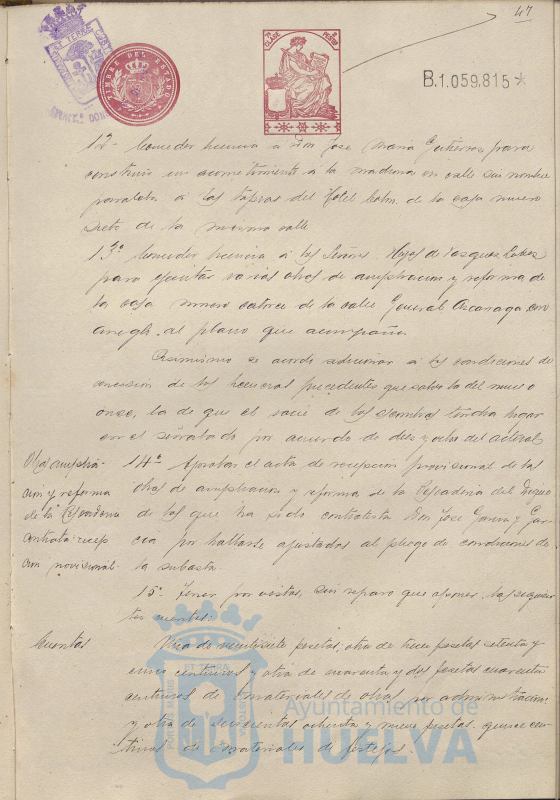 47
B.1.059.815*
TIMBRE DEL ESTADO
CLASE
12º Conceder licencia á Don José Maria Gutierrez para
construir un acometimiento á la madrona en calle sin nombre
paralela á las tapias del Hotel Colon, de la casa número
siete de la misma calle
13º Conceder licencia á los Señores Hijos de Vazquez Lopez
para ejecutar varias obras de ampliacion y reforma de
la casa número catorce de la calle General Azcarraga con
arreglo al plano que acompaña.
Asimismo se acordó adicionar á las condiciones de
concesion de las licencias precedentes que salvo la del número
once, la de que el sacie de los escombros tendrá lugar
en el señalado por acuerdo de diez y ocho del actual
Obras ampliacion y reforma
de la Pescadería
contrata: recepcion provisional.
14º Aprobar el acta de recepcion provisional de las
obras de ampliacion y reforma de la Pescadería del
de las que ha sido contratista Don José Garcia y Garcia
por hallarse ajustadas al pliego de condiciones de
la subasta.
15º Tener por vistas, sin reparo que oponer, las siguientes
cuentas:
Cuentas
Una de veintisiete pesetas, otra de trece pesetas setenta y
cinco centimos y otra de cuarenta y dos pesetas cuarenta
centimos de materiales de obras por administracion
y otra de seiscientas ochenta y nueve pesetas quince centimos
de materiales de festejos.
Ayuntamiento de
HUELVA